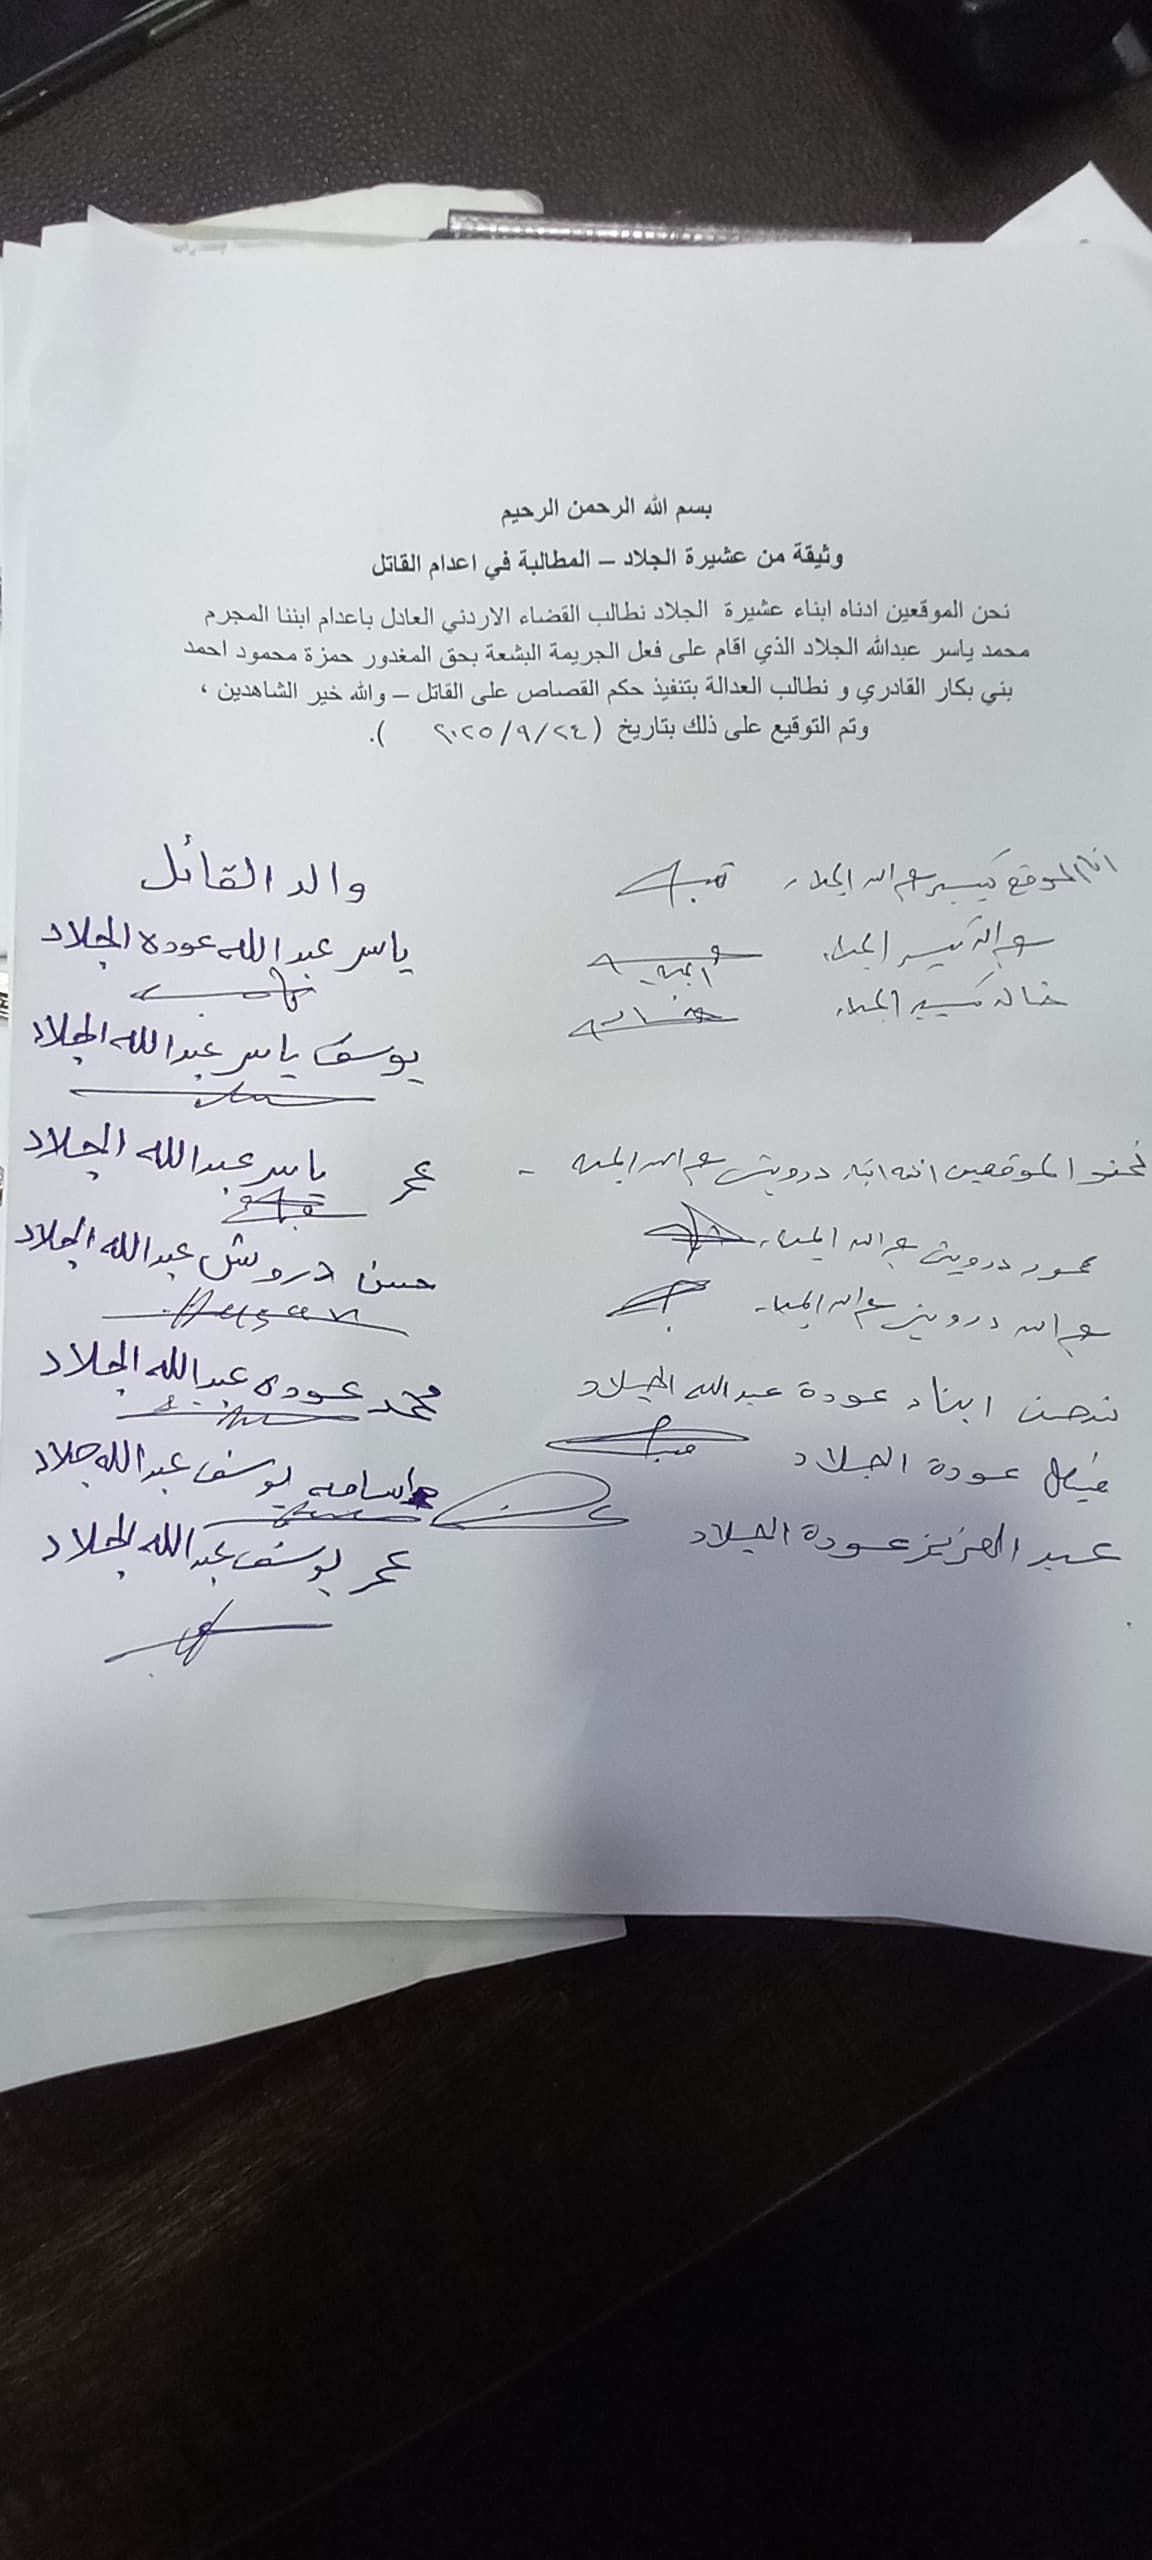 بسم الله الرحمن الرحيم
وثيقة من عشيرة الجلاد – المطالبة في اعدام القاتل
نحن الموقعين ادناه ابناء عشيرة الجلاد نطالب القضاء الاردني العادل باعدام ابننا المجرم
محمد ياسر عبدالله الجلاد الذي اقام على فعل الجريمة البشعة بحق المغدور حمزة محمود احمد
بني بكار القادري و نطالب العدالة بتنفيذ حكم القصاص على القاتل – والله خير الشاهدين ،
وتم التوقيع على ذلك بتاريخ ( ٢٤/٩/٢٠٢٥ ).
انا الموقع تيسير عبد الله الجلاد
عبد الله تيسير الجلاد
خالد تيسير الجلاد
نحنو الموقعين ادناه ابناء درويش عبد الله الجلاد
محمود درويش عبد الله الجلاد
عبد الله درويش عبد الله الجلاد
نحن ابناء عودة عبدالله الجلاد
عودة الجلاد
عبد العزيز عودة الجلاد
والد القاتل
ياسر عبد الله عوده الجلاد
يوسف ياسر عبدالله الجلاد
عمر ياسر عبدالله الجلاد
حسن دروش عبدالله الجلاد
Hasan
محمد عوده عبدالله الجلاد
اسامه يوسف عبدالله جلاد
عمر يوسف عبدالله الجلاد